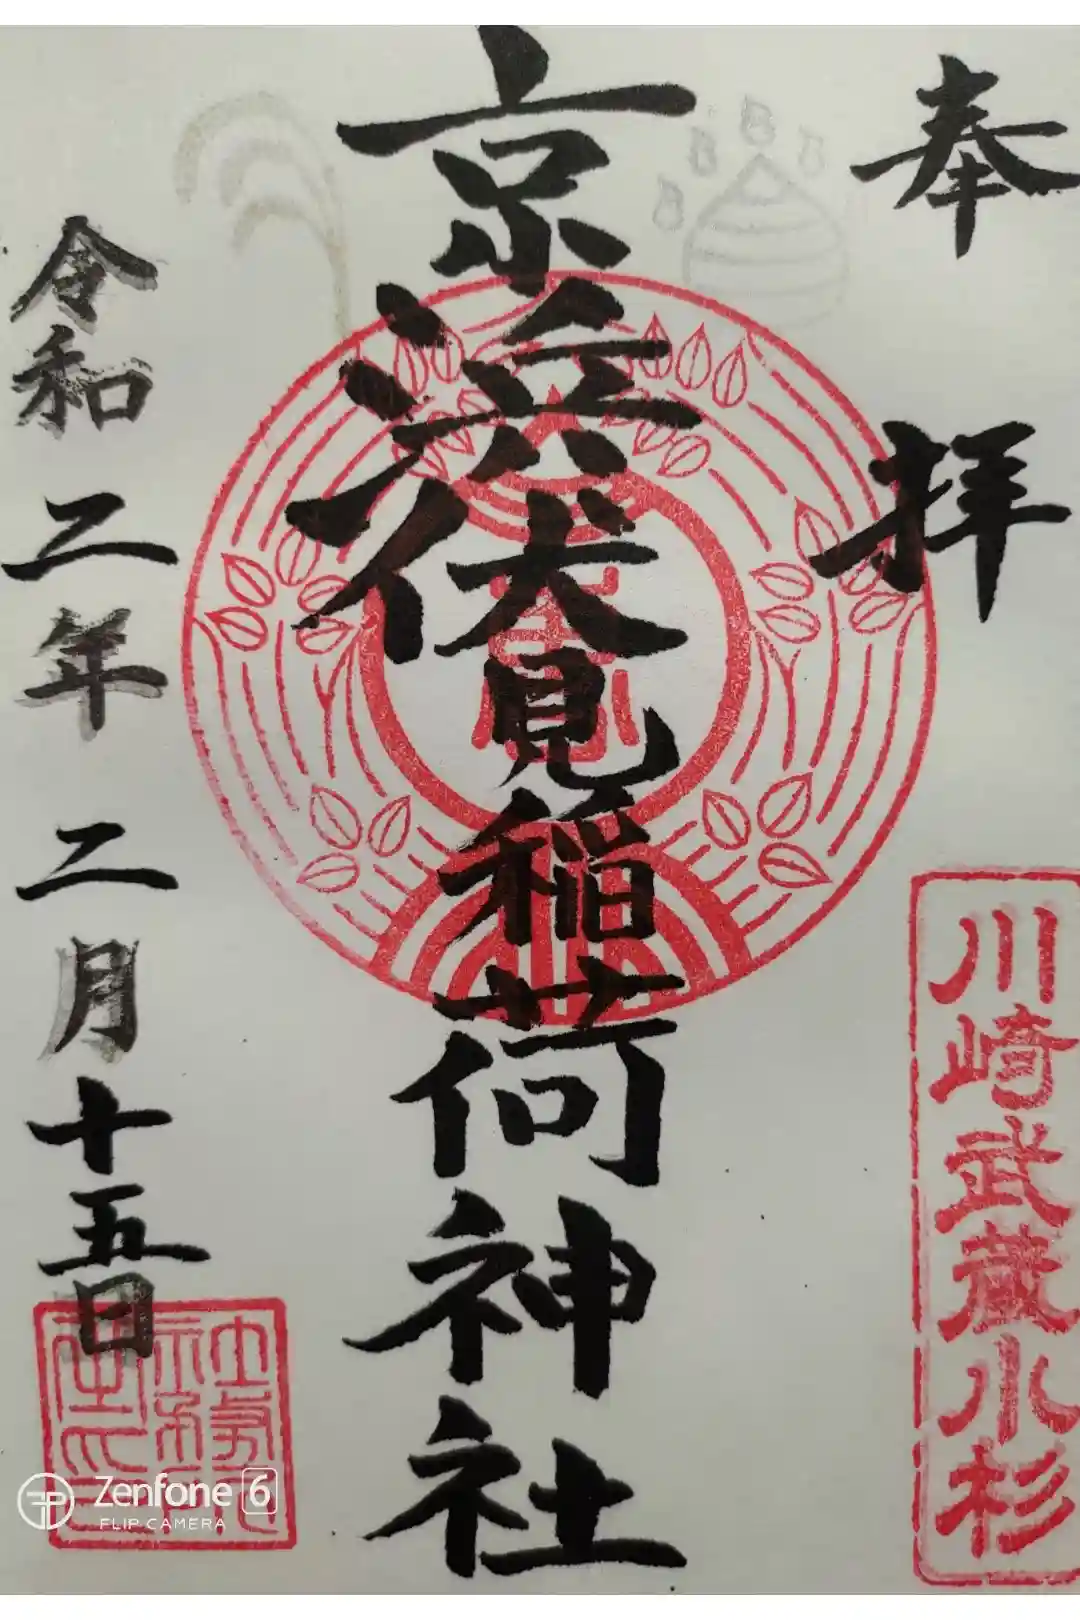 奉拝
川崎武蔵小杉
京浜伏見稲荷神社
令和二年二月十五日
Zenfone 6
FLIP CAMERA